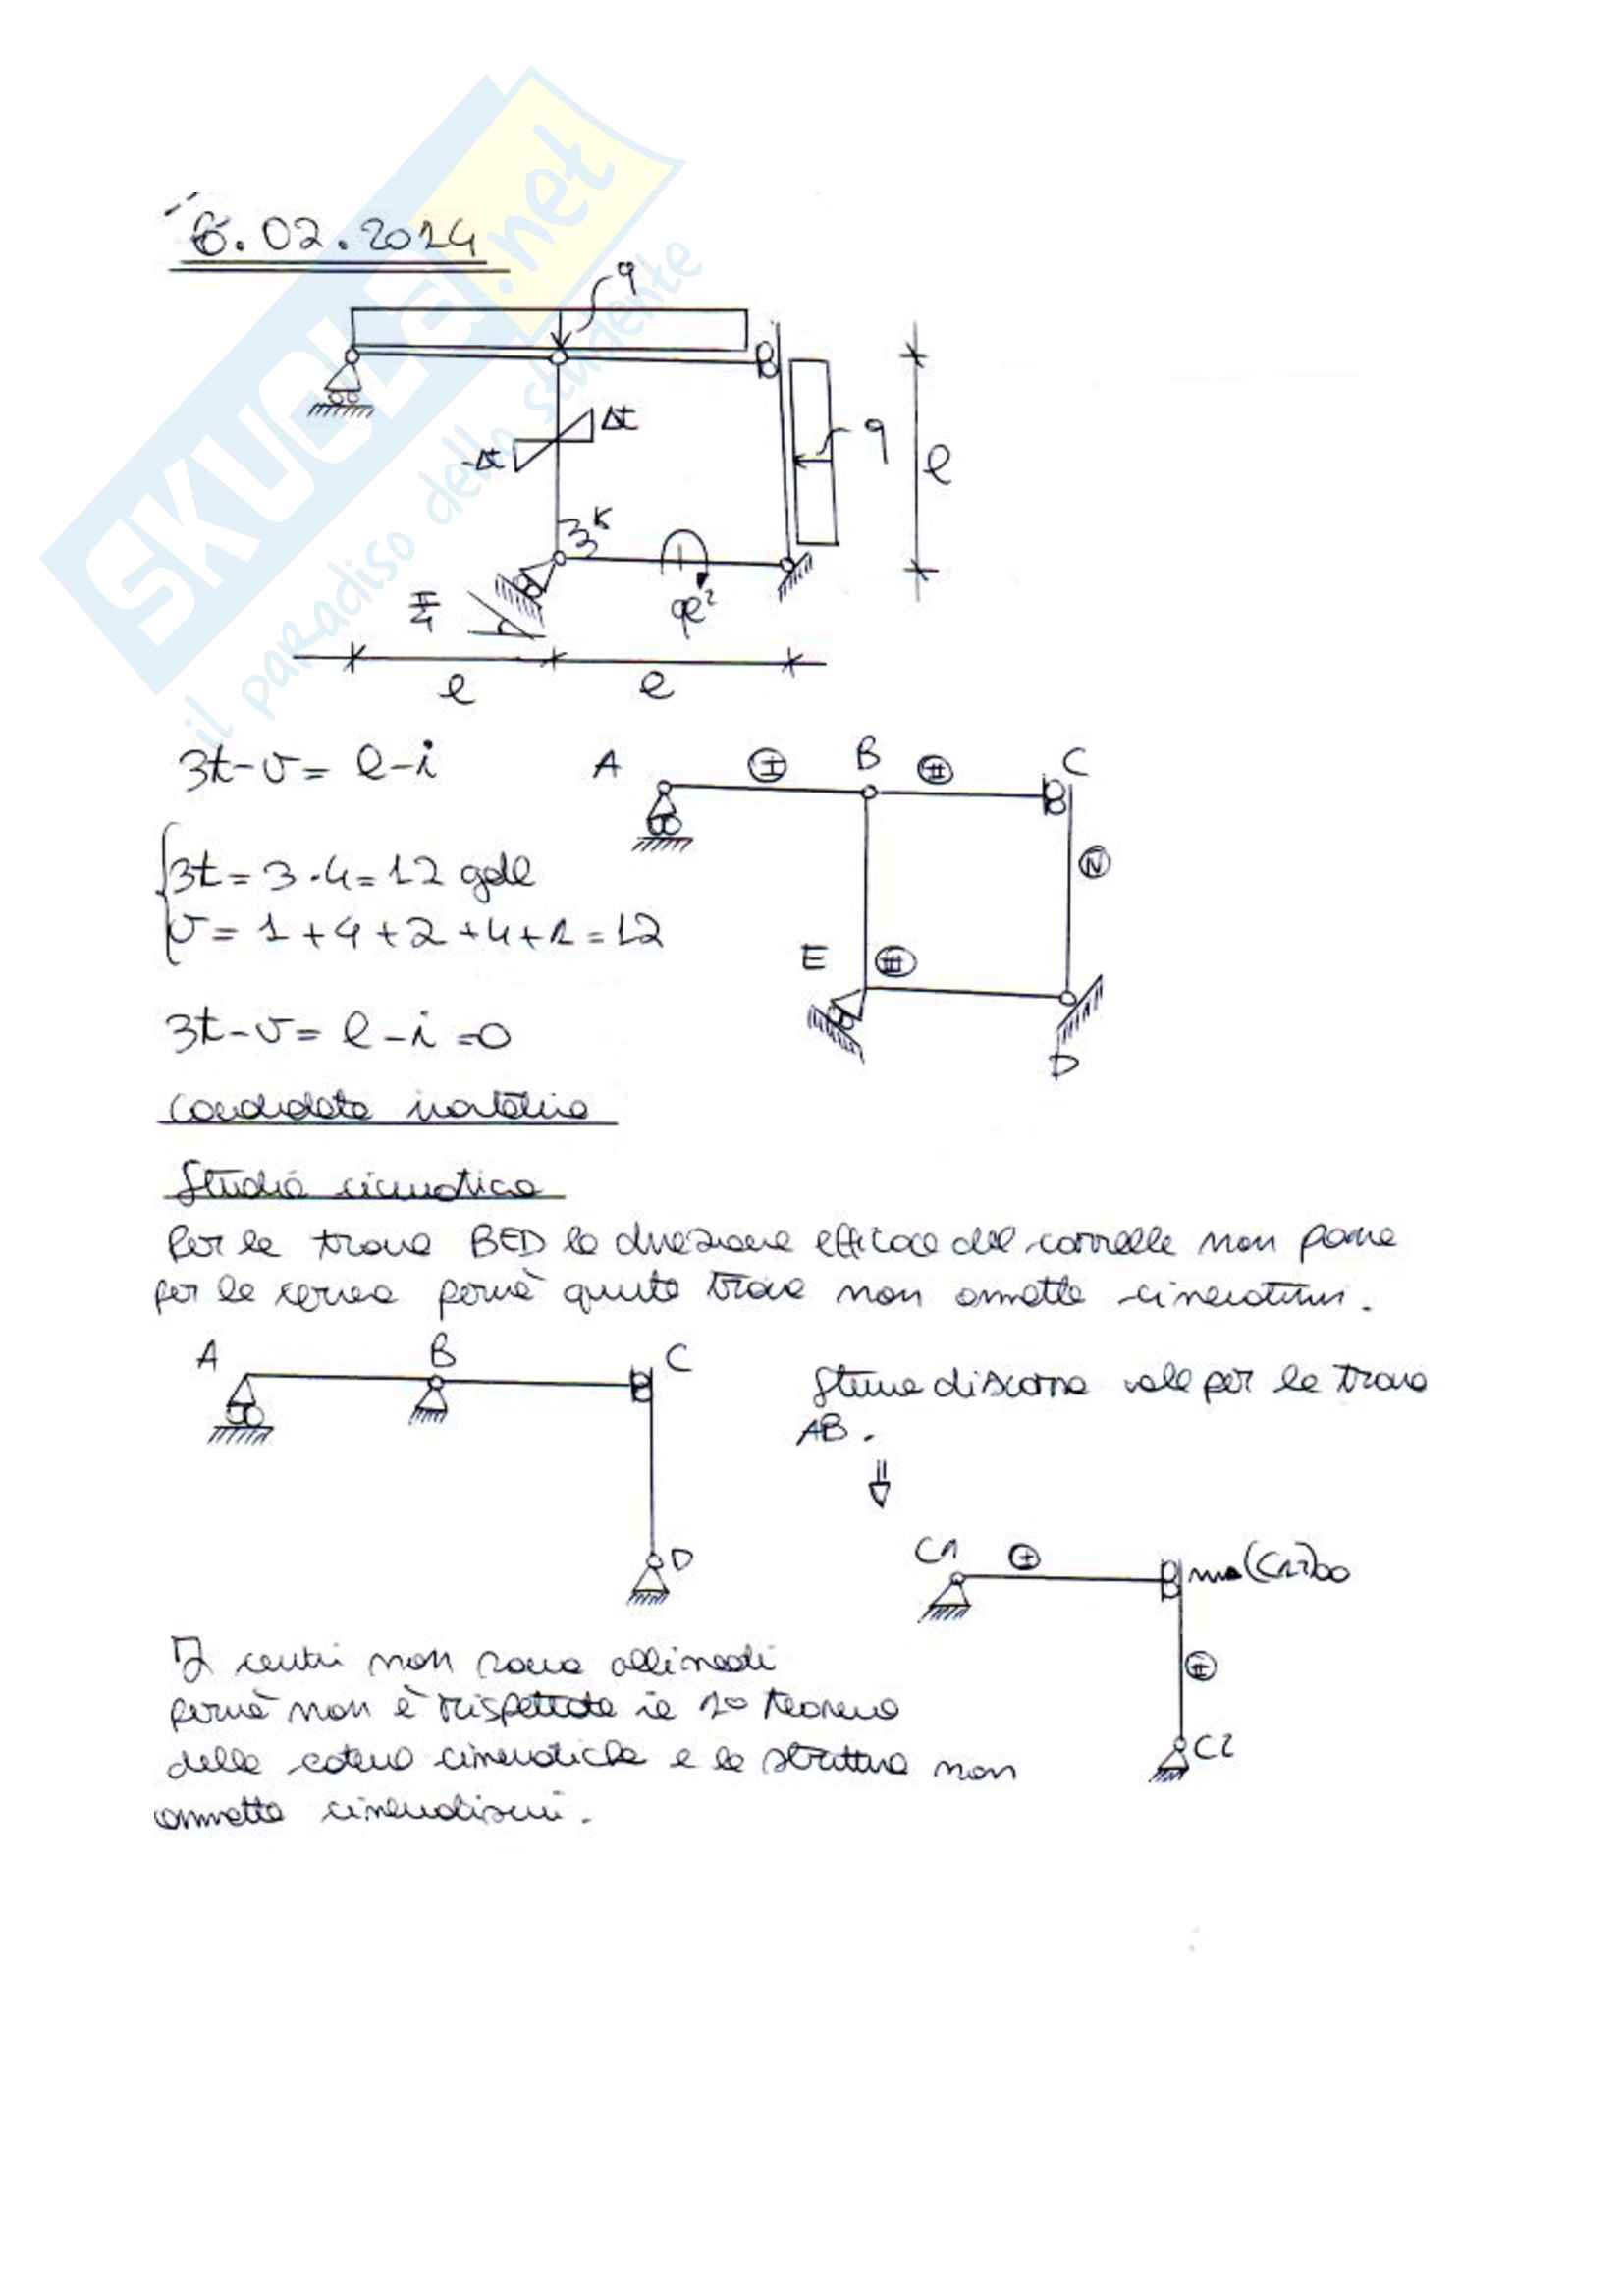 6.02.2014
q
Δt
-Δt
q
l
K
π/4
ql²
l
l
3t-v= l-i
A
I
B
II
C
3t= 3·4=12 gdl
v= 1+4+2+4+1=12
IV
E
III
D
3t-v= l-i=0
Candidata isostatica
Studio cinematico
Per la trave BED la direzione efficace del carrello non passa
per la cerniera perciò questa trave non ammette cinematismi.
A
B
C
D
Stesso discorso vale per la trave
AB.
⇓
C1
I
(C12)∞
II
C2
I centri non sono allineati
perciò non è rispettato il 1° teorema
delle catene cinematiche e la struttura non
ammette cinematismi.
SKUOLA.net
il paradiso dello studente